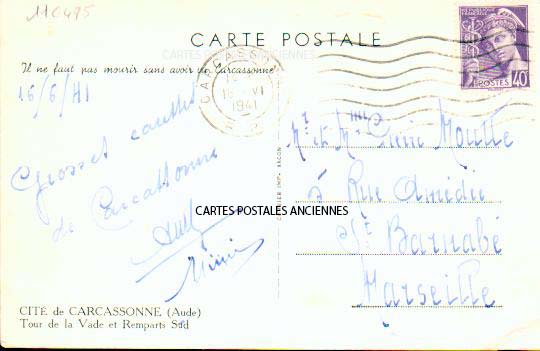 11C475
CARTE POSTALE
CARTES POSTALES ANCIENNES
Il ne faut pas mourir sans avoir vu Carcassonne
16/6/41
CARCASSONNE
16 VI
1941
POSTES 40
Grosses
de Carcassonne
Mimi
Mr et Me Pierre Moutte
5 Rue Amédée
St Barnabé
Marseille
CARTES POSTALES ANCIENNES
CITÉ de CARCASSONNE (Aude)
Tour de la Vade et Remparts Sud